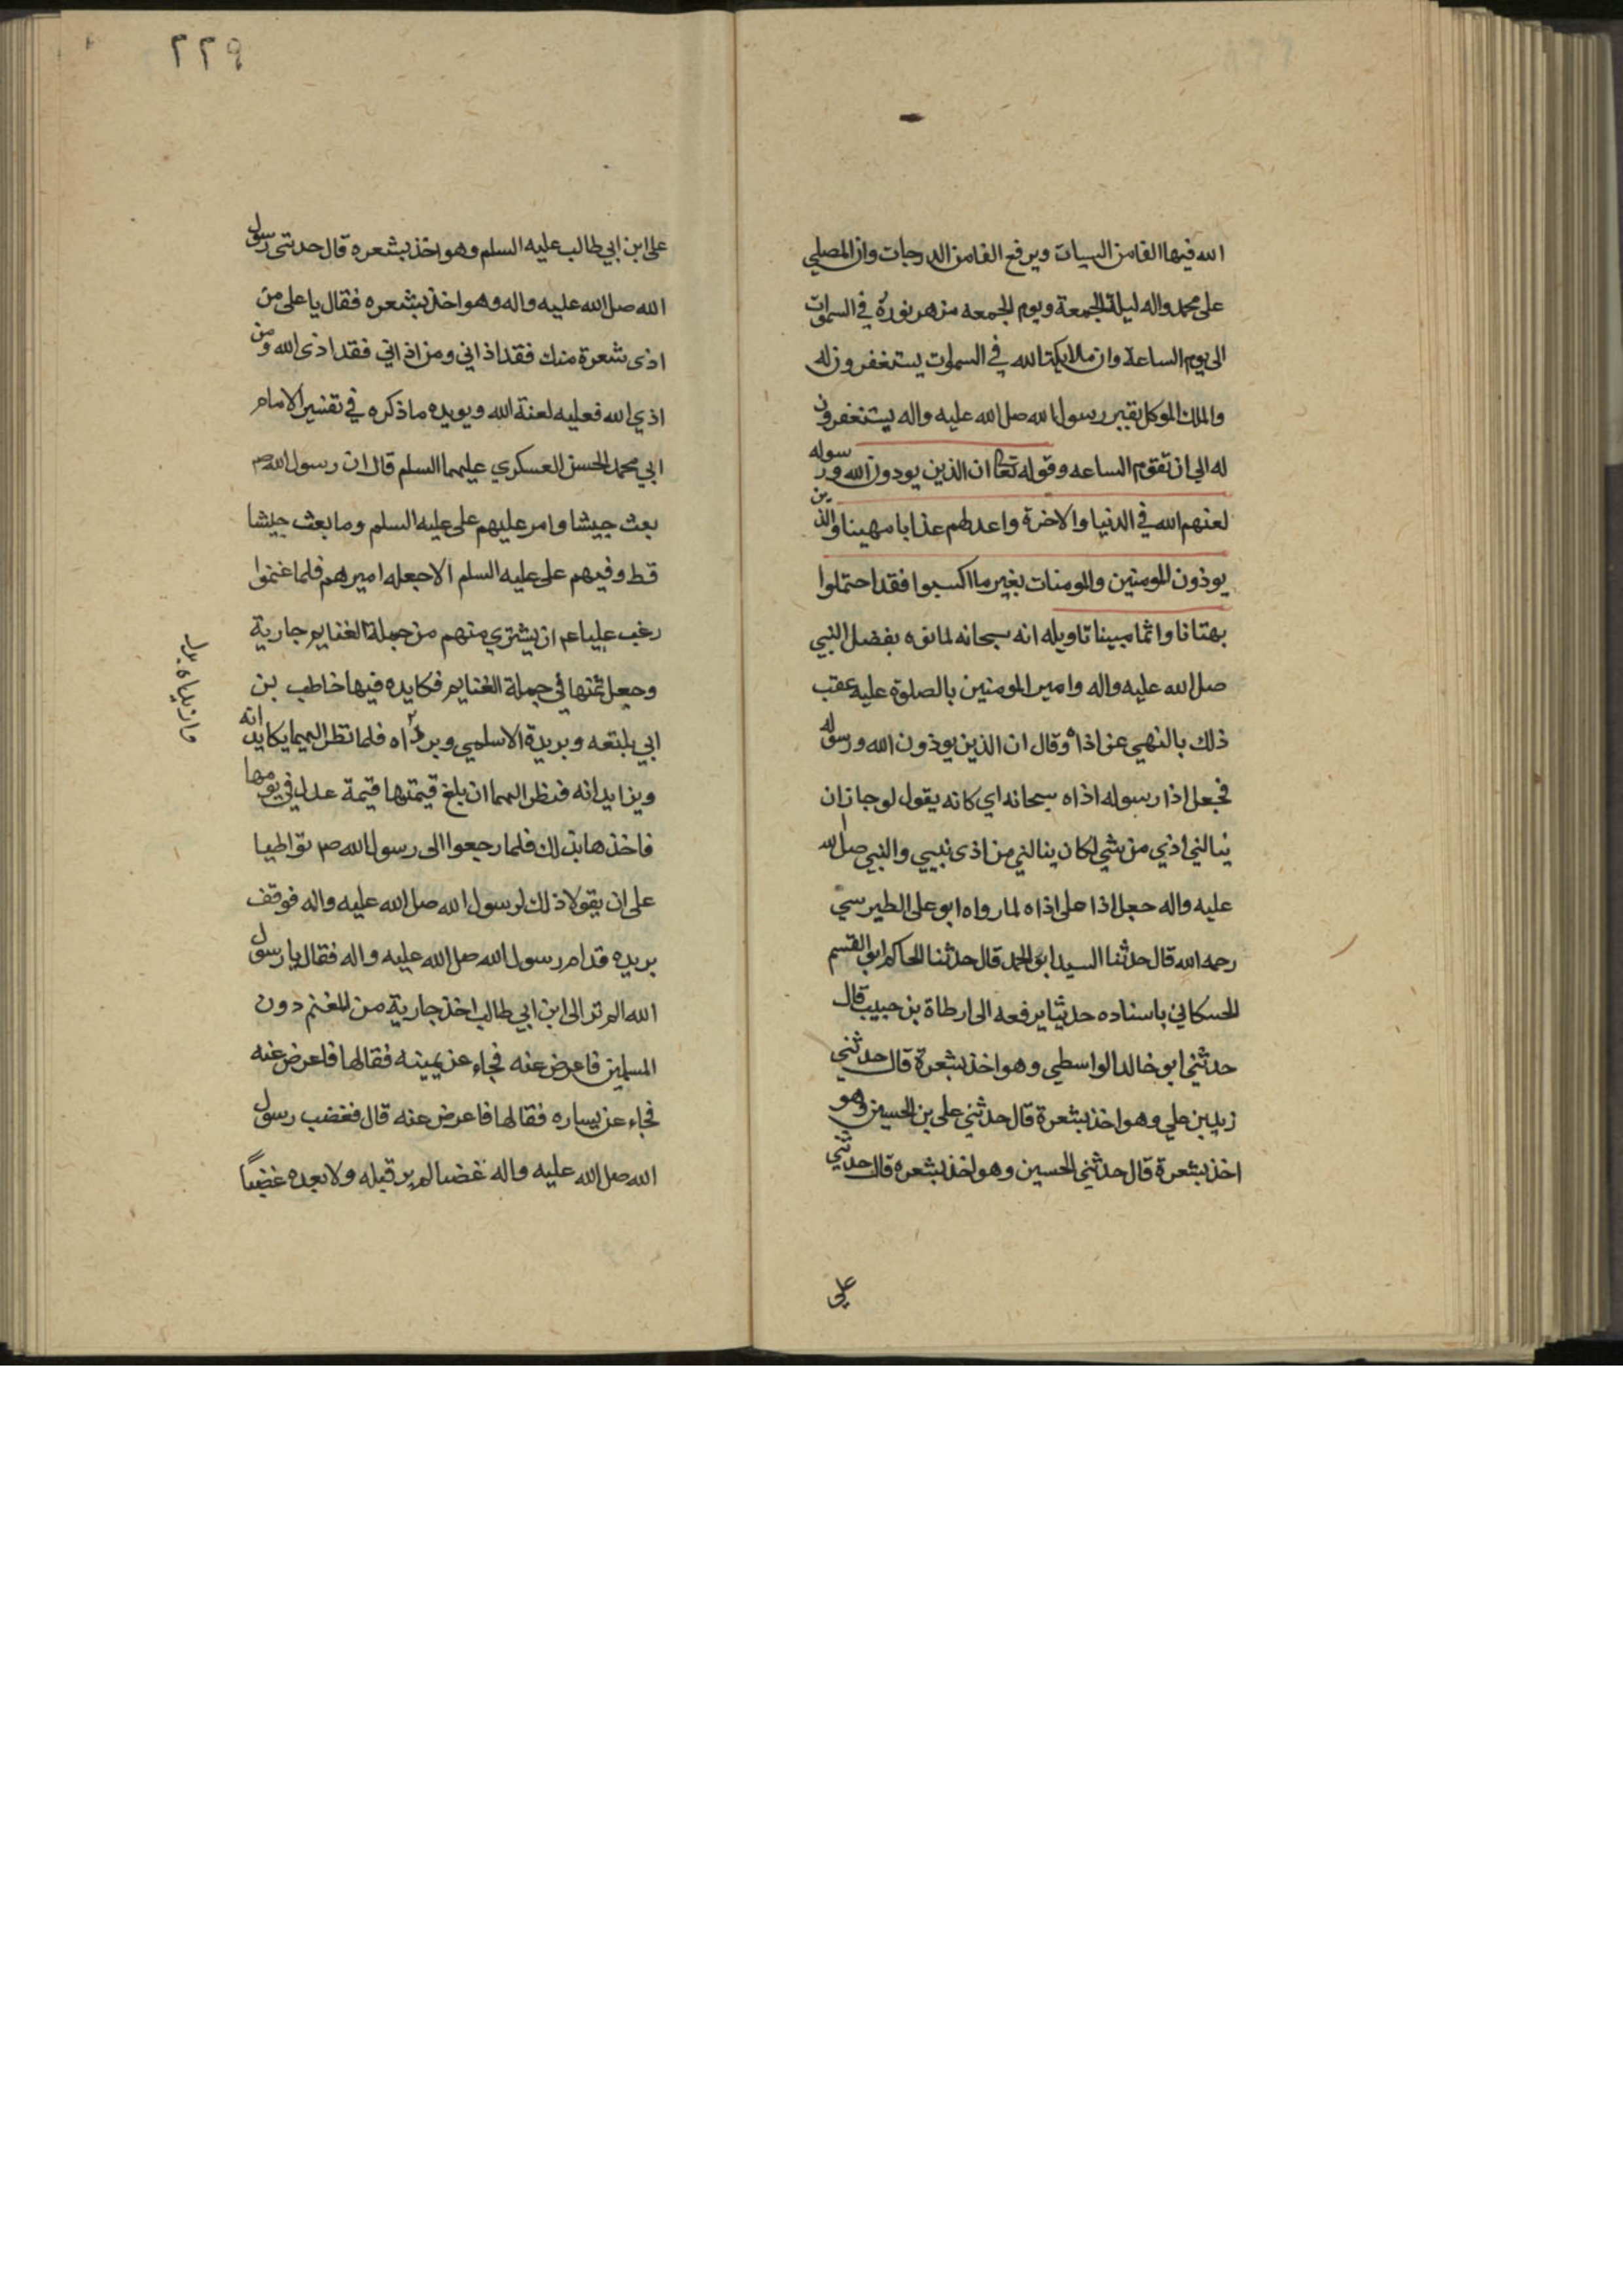 الله فيها الفا من السيات ويرفع الفا من الدرجات وان المصلي
على محمد واله ليلة الجمعة ويوم الجمعه مزهر نوره في السموات
الى يوم الساعة وان ملايكة الله في السموات يستغفرون له
والملك الموكل بقبر رسول الله صل الله عليه واله يستغفرون
له الى ان تقوم الساعه وقوله تعا ان الذين يوذون الله ورسوله
لعنهم الله في الدنيا والاخرة واعد لهم عذابا مهينا والذين
يوذون المومنين والمومنات بغير ما اكسبوا فقد احتملوا
بهتانا واثما مبينا تاويله انه سبحانه لما نوه بفضل النبي
صل الله عليه واله وامير المومنين بالصلوة عليه عقب
ذلك بالنهي عن اذاه وقال ان الذين يوذون الله ورسوله
فجعل اذا رسوله اذاه سبحانه اي كانه يقول لو جاز ان
ينالني اذي من شي لكان ينالني من اذى نبيي والنبي صل الله
عليه واله جعل اذا على اذاه لما رواه ابو على الطبرسي
رحمه الله قال حدثنا السيد ابو الحمد قال حدثنا الحاكم ابو القسم
الحسكاني باسناده حديثا يرفعه الى ارطاة بن حبيب قال
حدثني ابو خالد الواسطي وهو اخذ بشعرة قال حدثني
زيد بن علي وهو اخذ بشعرة قال حدثني على بن الحسين وهو
اخذ بشعرة قال حدثني الحسين وهو اخذ بشعره قال حدثني
علي
٢٢٩
على ابن ابي طالب عليه السلم وهو اخذ بشعره قال حدثني رسول
الله صل الله عليه واله وهو اخذ بشعره فقال يا على من
اذى شعرة منك فقد اذاني ومن اذاني فقد اذى الله ومن
اذي الله فعليه لعنة الله ويويده ما ذكره في تفسير الامام
ابي محمد الحسن العسكري عليهما السلم قال ان رسول الله ص
بعث جيشا وامر عليهم على عليه السلم وما بعث جيشا
قط وفيهم على عليه السلم الا جعله اميرهم فلما غنموا
رغب عليا ع ان يشتري منهم من جملة الغنايم جارية
وجعل ثمنها في جملة الغنايم فكايده فيها خاطب بن
ابي بلتعه وبريدة الاسلمي وبرداه فلما نظر اليهما يكايدانه
ويزايدانه فنظر اليهما ان بلغ قيمتها قيمة عدل في يومها
فاخذها بذلك فلما رجعوا الى رسول الله ص تواطيا
على ان يقولا ذلك لرسول الله صل الله عليه واله فوقف
بريده قدام رسول الله صل الله عليه واله فقال يا رسول
الله الم تر الى ابن ابي طالب اخذ جارية من المغنم دون
المسلمين فاعرض عنه فجاء عن يمينه فقالها فاعرض عنه
فجاء عن يساره فقالها فاعرض عنه قال فغضب رسول
الله صل الله عليه واله غضبا لم ير قبله ولا بعده غضبا